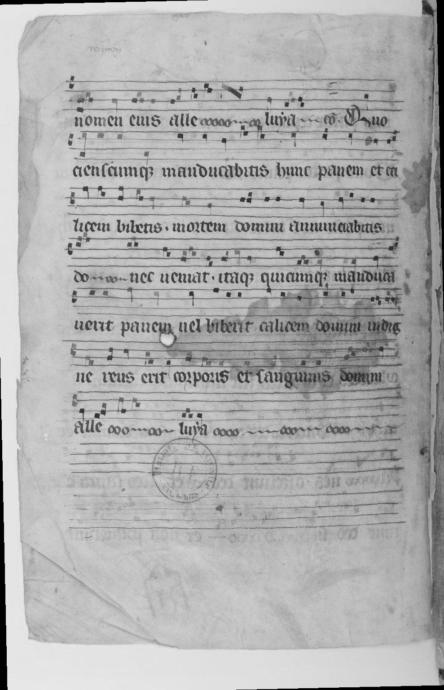 nomen eius alle luya Quo
cienscumqꝫ manducabitis hunc panem et ca
licem bibetis · mortem domini annunciabitis
do nec veniat · itaqꝫ quicumqꝫ manduca
uerit panem uel biberit calicem domini indig
ne reus erit corporis et sanguinis domini
alle luya